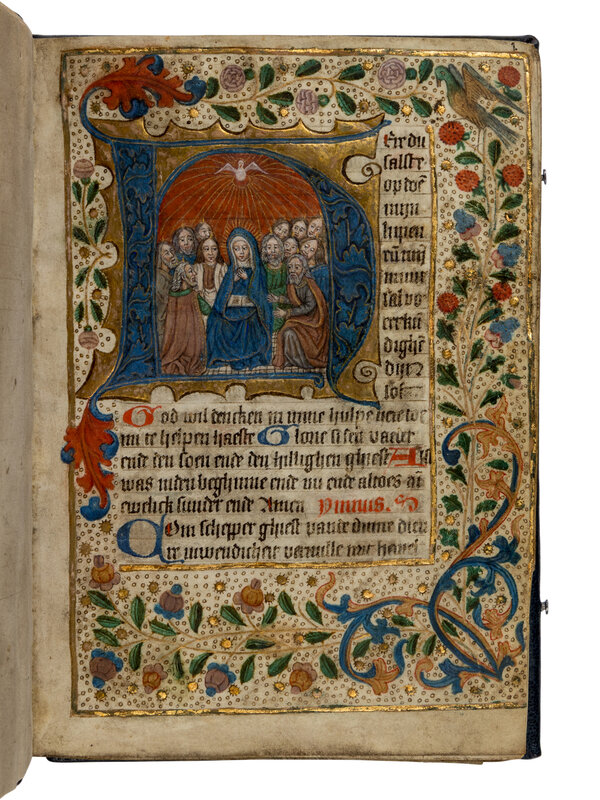 H Ere du
salste
op doē
mijn
lippen
eñ mijn
munt
sal vo
erkū
dighē
dijn
lof
God wil dencken in mine hulpe here
mi te helpen haeste Glorie si den vader
ende den soen ende den hillighen ghiest Als
was inden beghinne ende nu ende altoes
ewelick sunder ende Amen Ymnus.
Com schepper ghiest dinre dien
re inwendicheit vervulle mit hemel